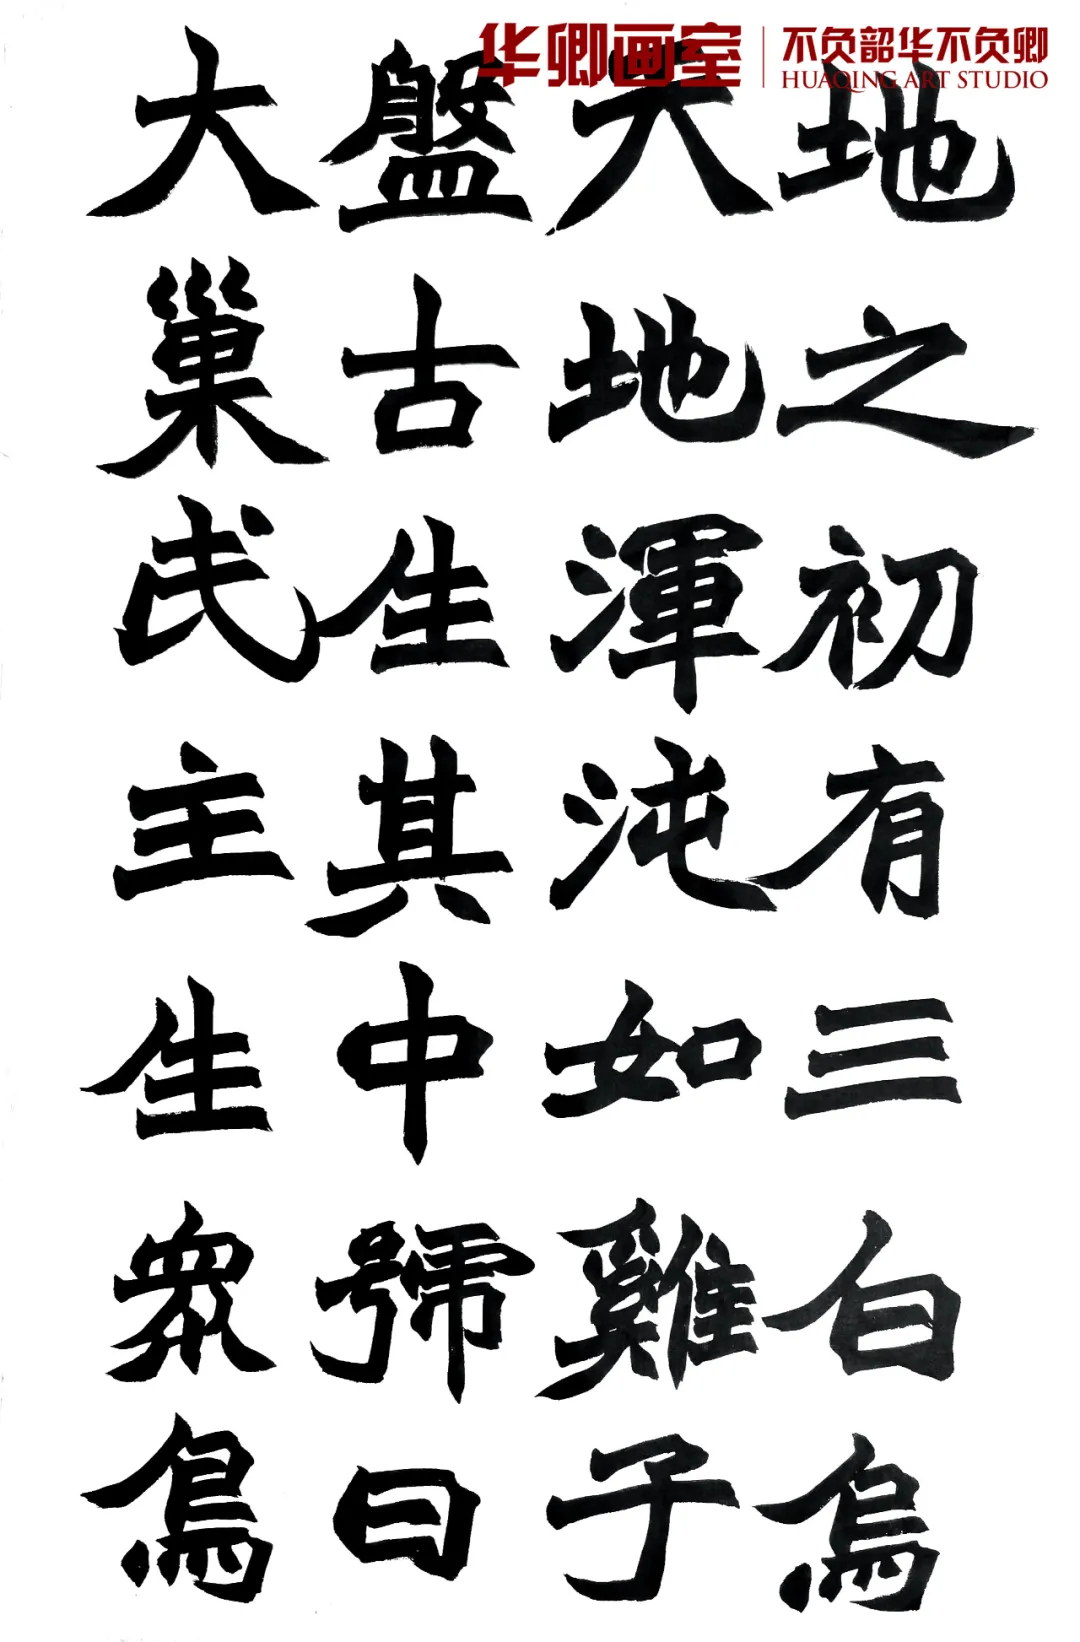 华卿画室
不负韶华不负卿
HUAQING ART STUDIO
地之初有三白烏
天地渾沌如雞子
盤古生其中號曰
大巢氏主生眾鳥